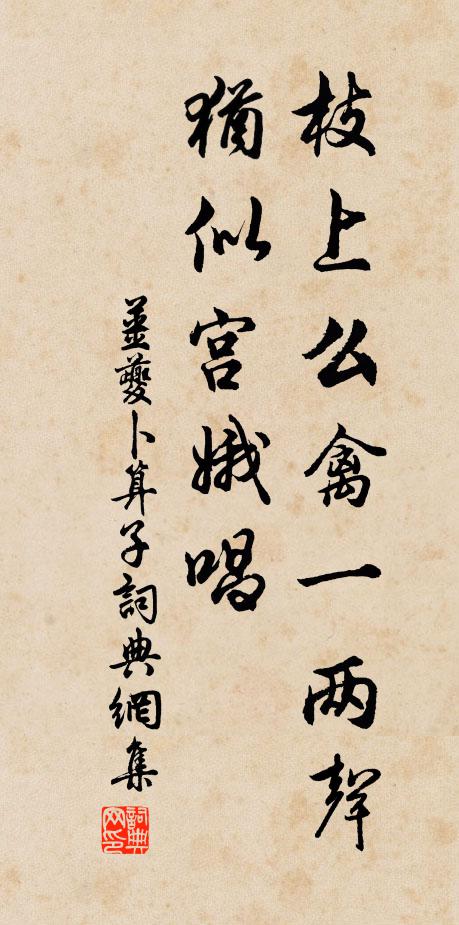 枝上么禽一两聲
猶似宫娥唱
姜夔卜算子詞典網集
詞典网印